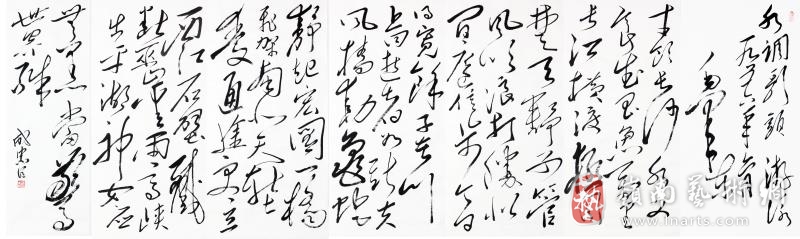 水调歌头 游泳
一九五六年六月
才饮长沙水又
食武昌鱼万里
长江横渡极目
楚天舒不管
风吹浪打胜似
闲庭信步今日
得宽余子在川
上曰逝者如斯夫
风樯动龟蛇
静起宏图一桥
飞架南北天堑
变通途更立
西江石壁截
断巫山云雨高峡
出平湖神女应
无恙当惊
世界殊
嶺南藝術網